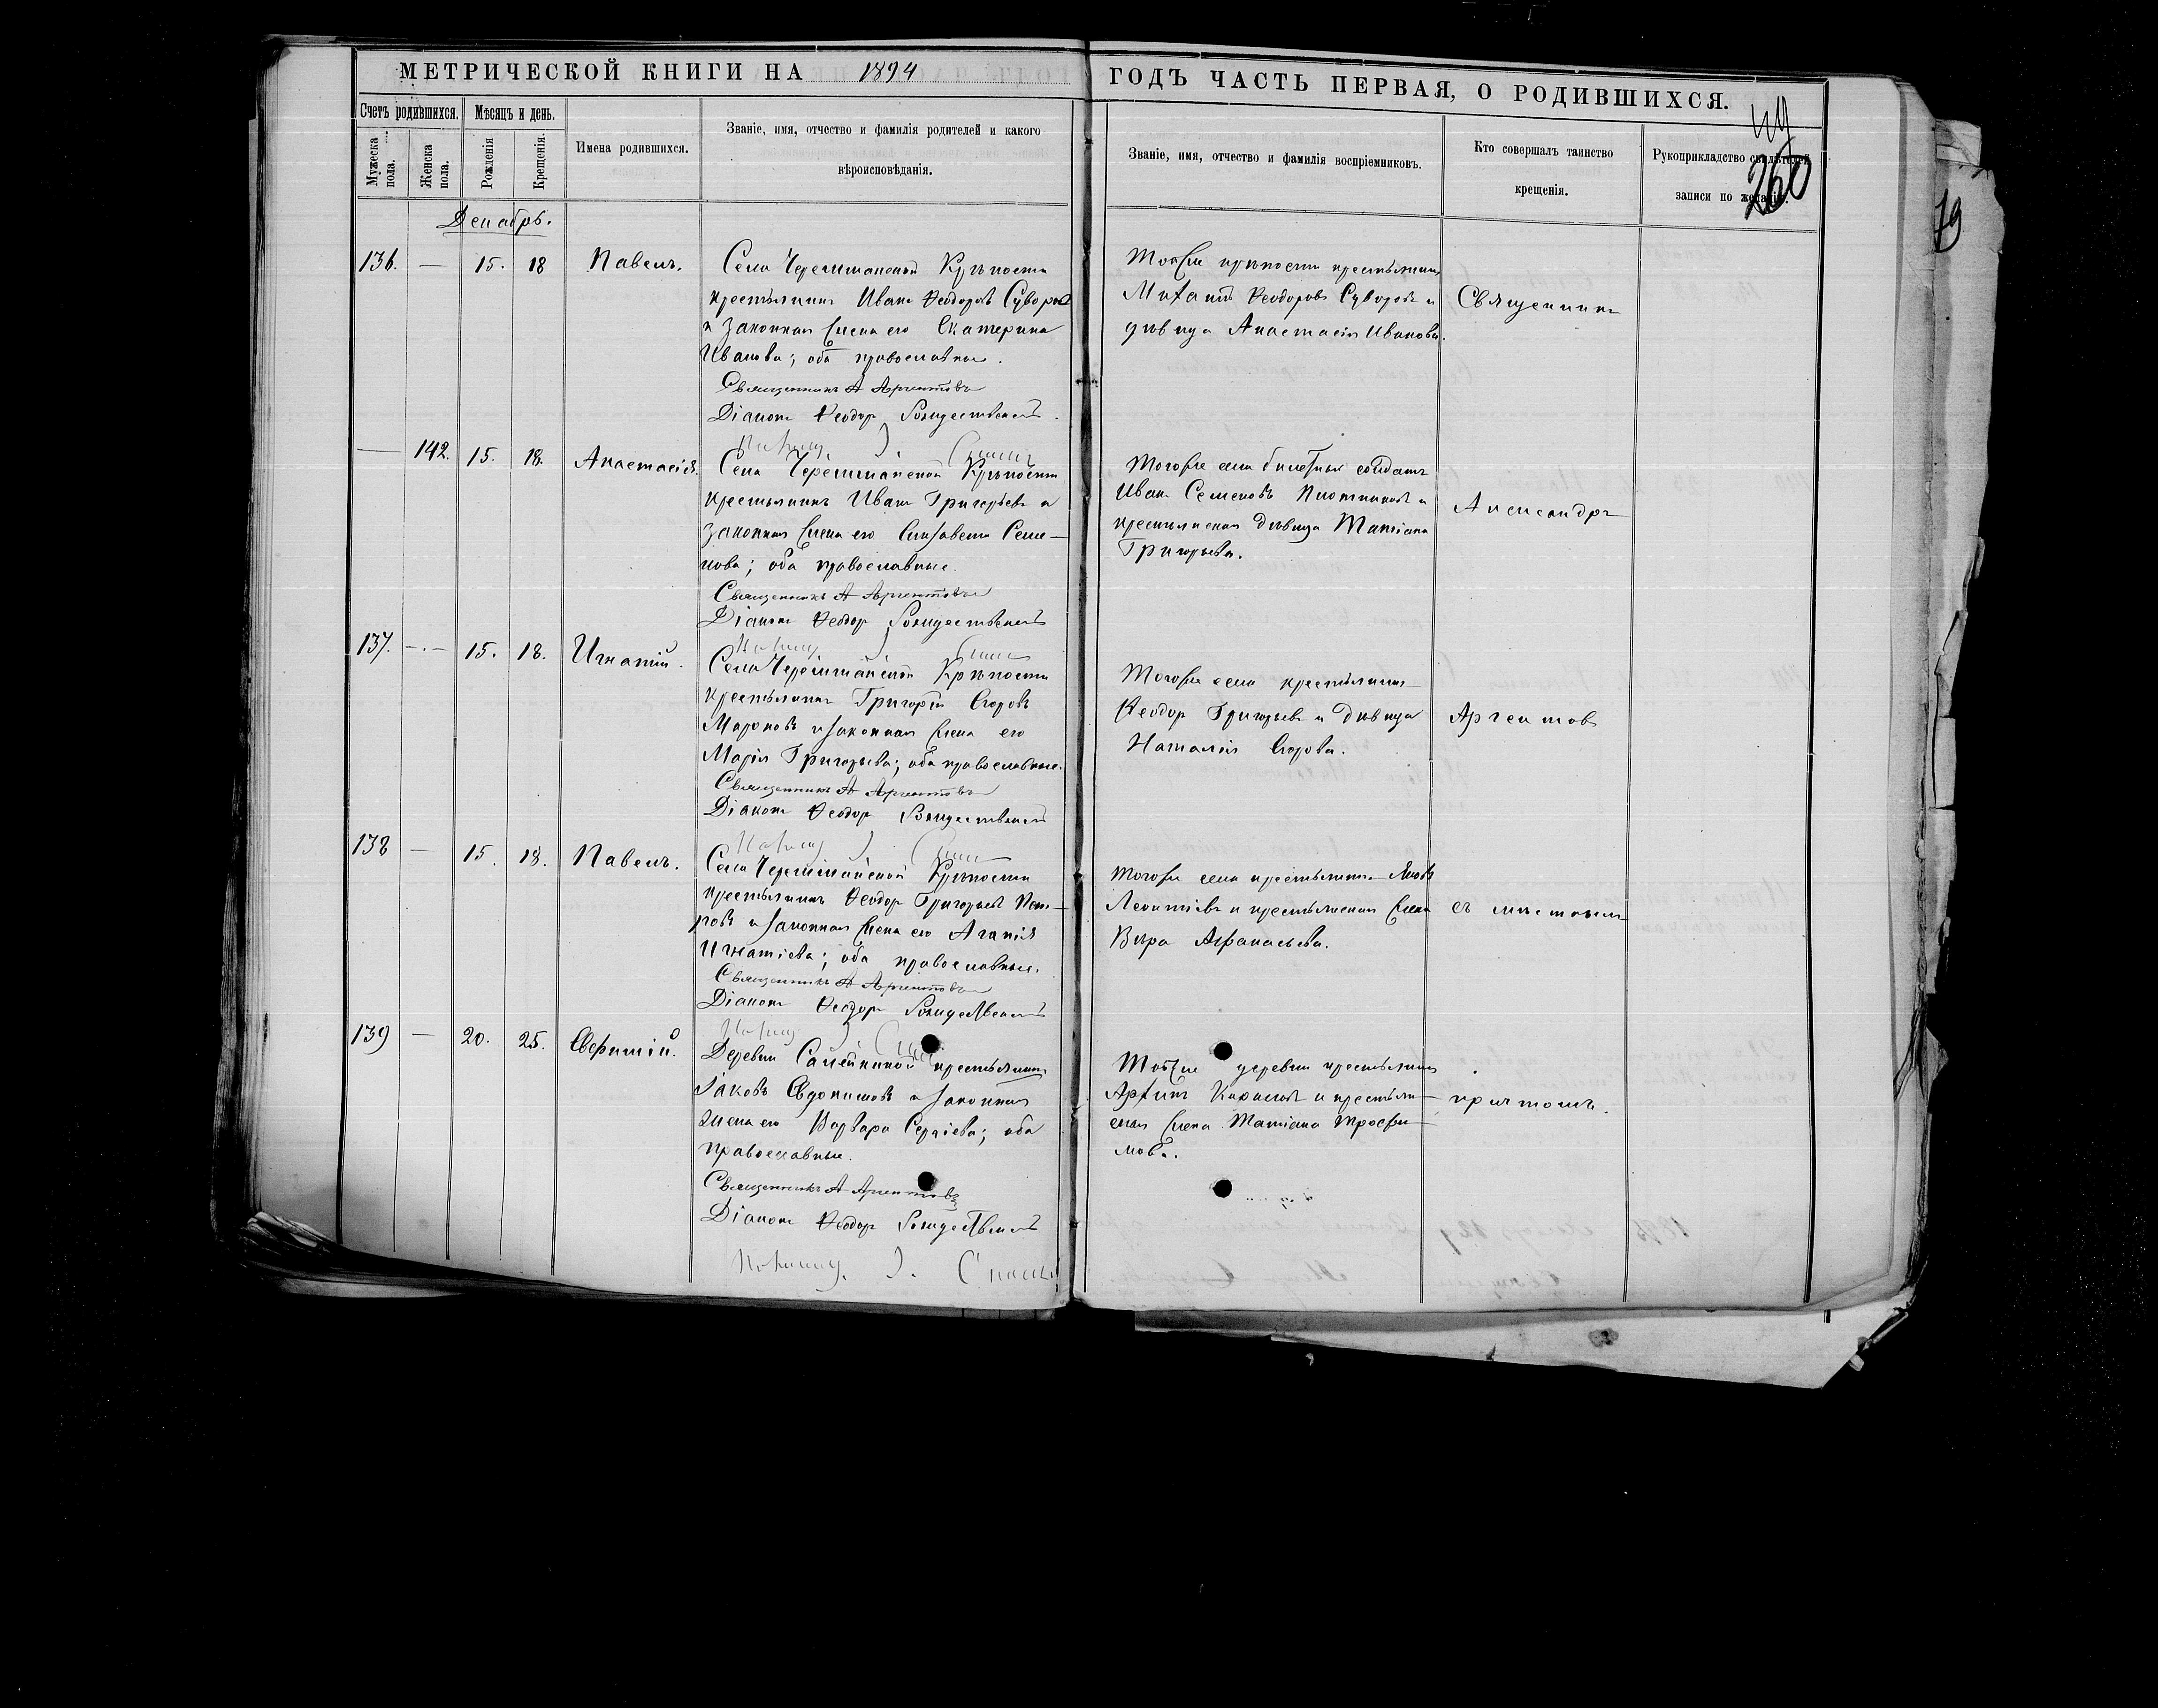 МЕТРИЧЕСКОЙ КНИГИ НА 1894
ГОДЪ ЧАСТЬ ПЕРВАЯ, О РОДИВШИХСЯ.
Счетъ родившихся.
Мѣсяцъ и день.
Мужеска пола.
Женска пола.
Рожденія
Крещенія.
Имена родившихся.
Званіе, имя, отчество и фамилія родителей и какого
вѣроисповѣданія.
Званіе, имя, отчество и фамилія воспріемниковъ.
Кто совершалъ таинство
крещенія.
Рукоприкладство свидѣтелей
записи по желанію.
260
79
Декабрь.
136. — 15. 18 Павелъ.
Села Черемшанской Крѣпости
крестьянинъ Иванъ Ѳеодоровъ Суворовъ
и законная жена его Екатерина
Иванова; оба православные.
Священникъ А Аргентовъ
Діаконъ Ѳеодоръ Рождественскій
Тойже крѣпости крестьянинъ
Михаилъ Ѳеодоровъ Суворовъ и
дѣвица Анастасія Иванова.
Священникъ
— 142. 15. 18. Анастасія.
Села Черемшанской Крѣпости
крестьянинъ Иванъ Григорьевъ и
законная жена его Елизавета Семе-
нова; оба православные.
Священникъ А Аргентовъ
Діаконъ Ѳеодоръ Рождественскій
Тогоже села билетный солдатъ
Иванъ Семеновъ Плотниковъ и
крестьянская дѣвица Татіана
Григорьева.
Александръ
137. — 15. 18. Игнатій.
Села Черемшанской Крѣпости
крестьянинъ Григорій Егоровъ
и законная жена его
Марія Григорьева; оба православные.
Священникъ А Аргентовъ
Діаконъ Ѳеодоръ Рождественскій
Тогоже села крестьянинъ
Ѳеодоръ Григорьевъ и дѣвица
Наталія Егорова.
Аргентовъ
138 — 15. 18. Павелъ.
Села Черемшанской Крѣпости
крестьянинъ Ѳеодоръ Григорьевъ Пет-
ровъ и законная жена его Агапія
Игнатіева; оба православные.
Священникъ А Аргентовъ
Діаконъ Ѳеодоръ Рождественскій
Тогоже села крестьянинъ Яковъ
Леонтіевъ и крестьянская жена
Вѣра Аѳанасьева.
съ мѣстнымъ
139 — 20. 25. Евфимій.
Деревни крестьянинъ
Іаковъ Евдокимовъ и законная
жена его Варвара Сергіева; оба
православные.
Священникъ А Аргентовъ
Діаконъ Ѳеодоръ Рождественскій
Тойже деревни крестьянинъ
и крестьян-
ская жена Татіана Трофи-
мова.
причтомъ.